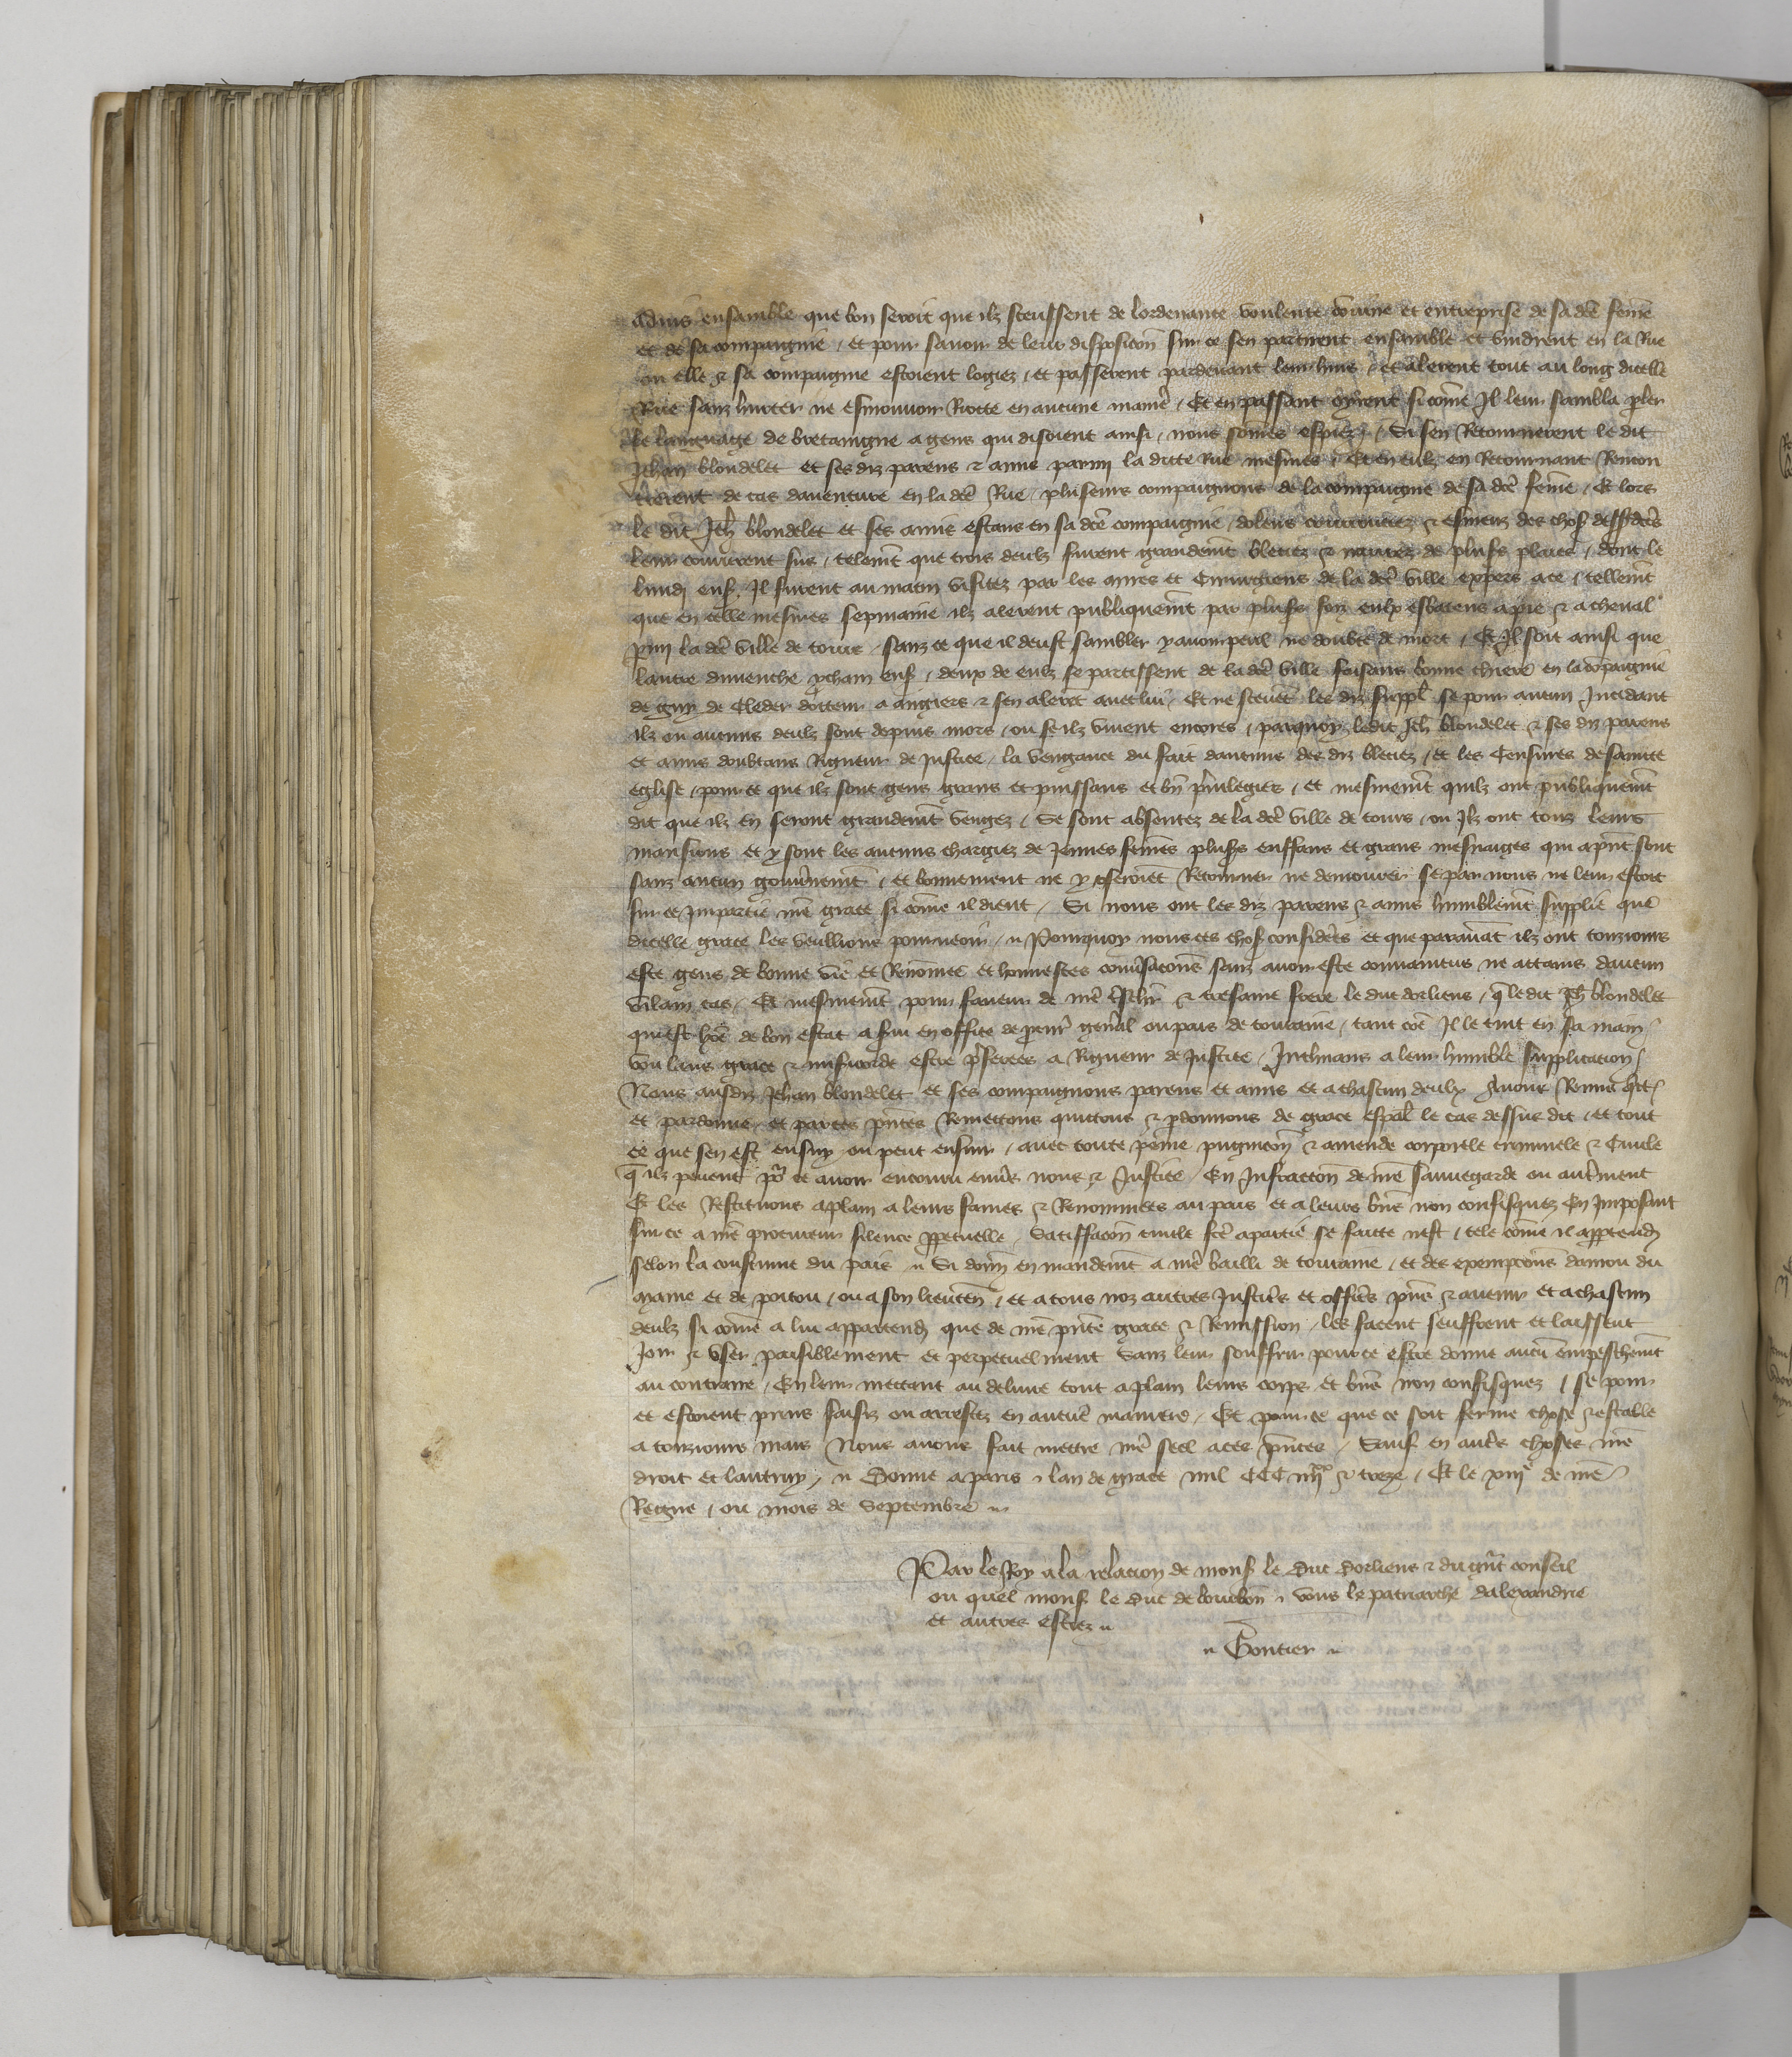 advis ensamble que bon seroit que ilz sceussent de lordenance voulente couvine et entreprise de sa dce feme
et de sa compaignie / et pour savoir de leur disposicon sur ce sen partirent ensamble et vindrent en la Rue
ou elle & sa compaignie estoient logiez / et passerent pardevant leur huis / et alerent tout au long dicelle
Rue sanz hurter ne esmouvoir Riote en aucune manie / Et en passant oyrent si come Il leur sambla pler
le languaige de bretaingne a gens qui disoient ainsi / nous somes espiez / Si sen Retournerent le dit
Jehan blondelet et ses diz parens & amis parmi la dicte Rue mesmes / Et en eulz en Retournant Rencon
trerent de cas daventure en la dce Rue / pluseurs compaignons de la compaignie de sa dce feme / Et lors
le dit Jeh blondelet et ses amis estans en sa dce compaignie / dolens courrouciez & esmeuz des chos dessdces
leur coururent sus / telemt que trois deulz furent grandemt bleciez & navrez de plus plaies / dont le
lundi ens Il furent au matin visitez par les mires et Cirurgiens de la dce ville expers a ce / tellemt
que en celle mesmes sepmaine ilz alerent publiquemt par plus foiz eulx esbatens a pie & a cheval
pmi la dce ville de tours / sanz ce que il deust sambler y avoir peril ne doubte de mort / Et Il soit ainsi que
lautre dimenche pcham ens / deux de eulz se partissent de la dce ville faisans bonne chiere en la copaignie
de guy de Cleder docteur a angiers & sen aleret avec lui / Et ne scevet les diz suppl se pour aucun Incidant
ilz ou aucuns deulz sont depuis mors / ou se ilz vivent encores / parquoy ledit Jeh blondelet & ses diz parens
et amis doubtans Rigueur de Justice / la vengance du fait daucuns des diz bleciez / et les Censures de saincte
eglise / pour ce que ilz sont gens grans et puissans et bn privilegies / et mesmemt quilz ont publiquemt
dit que ilz en seront grandemt vengez / Se sont absentez de la dce ville de tours / ou Ilz ont touz leurs
mansions et y sont les aucuns chargiez de Jeunes femes plus enffans et grans mesnaiges qui a pnt sont
sanz aucun gouvnemt / et bonnement ne y oseroiet Retourner ne demourer se par nous ne leur estoit
sur ce Impartie nre grace si come il dient / Si nous ont les diz parens & amis humblemt supplie que
dicelle grace les veullions pourveoir / Pourquoy nous ces chos consideres et que paravat ilz ont touzjours
este gens de bonne vie et Renomee et honnestes conversacons sanz avoir este convaincus ne attains daucun
vilain cas / Et mesmemt pour faveur de nre trescher & tresame frere le duc dorliens / q ledit Jeh blondelet
qui est home de bon estat a servi en office de procur general ou pais de touraine / tant coe Il le tint en sa main
voulans grace & misericorde estre preferees a Rigueur de Justice / Inclinans a leur humble supplication /
Nous ausdiz Jehan blondelet et ses compaignons parens et amis et a chascun deulx Avons Remis qtte
et pardonne / et par ces pntes Remettons quittons & pdonnons de grace espal le cas dessus dit / et tout
ce que sen est ensuy ou peut ensuir / avec toute peine pugnicon & amende corporele criminele & Civile
q ilz pevent por ce avoir encouru envers nous & Justice / En Infraccon de nre sauvegarde ou autrement
Et les Restituons a plain a leurs fames & Renommees au pais et a leurs bns non confisquez En Imposant
sur ce a nre procureur silence ppetuelle / Satisfacon civile fce a partie se faicte nest / tele come il appartendr
selon la coustume du pais / Si donns en mandemt a nre bailli de touraine / et des exempcions danjou du
maine et de poitou / ou a son lieuten / et a tous noz autres Justics et offics pns & avenir et a chascun
deulz si come a lui appartendr que de nre pnte grace & Remission / les facent seuffrent et laissent
Joir & user paisiblement et perpetuelment Sanz leur souffrir pour ce estre donne aucu empeschemt
au contraire / En leur mettant au delivre tout a plain leurs corps et bns non confisquez / se pour
ce estoient prins saisiz ou arrestez en aucune maniere / Et pour ce que ce soit ferme chose & estable
a touzjours mais Nous avons fait mettre nre seel a ces pntes / Sauf en autres choses nre
droit et lautruy / Donne a paris lan de grace mil CCC iiiixx & treze / Et le xiiie de nre
Regne / ou mois de Septembre
Par le Roy a la relacion de mons le Duc Dorliens & du grant conseil
ou quel mons le Duc de bourbon vous le patriarche dalexandrie
et autres estiez
Gontier